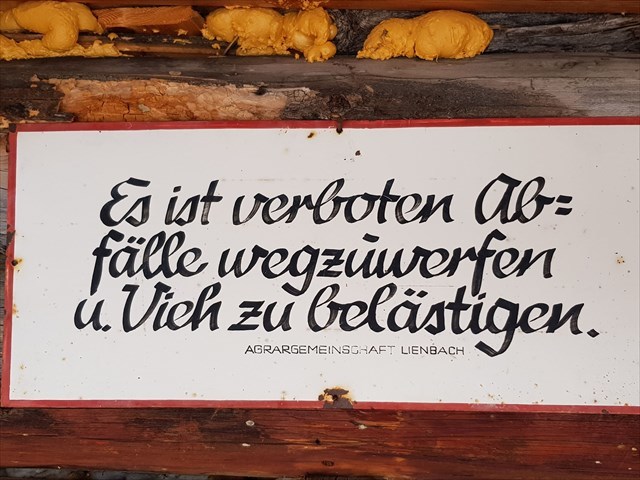 Es ist verboten Ab=
fälle wegzuwerfen
u. Vieh zu belästigen.
AGRARGEMEINSCHAFT LIENBACH